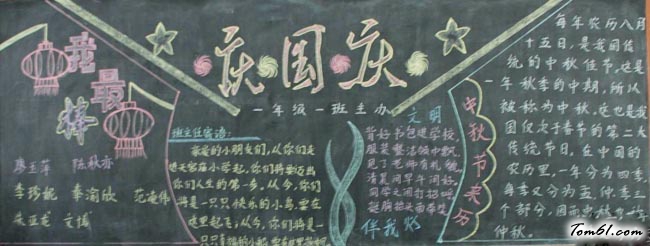 庆国庆
一年级一班主办
我最棒
廖玉萍 陈秋亦
李珍妮 韦渝欣 范海伟
文博
班主任寄语:
亲爱的小朋友们,从你们是
进天宫庙小学起,你们将要迈出
你们人生的第一步,从今,你们
将是一只只快乐的小鸟,要在
这里起飞,从今,你们将是
文明
背好书包进学校
见了老师有礼貌
伴我行
中秋节来历
每年农历八月
十五日,是我国传
统的中秋佳节,这是
一年秋季的中期,所以
被称为中秋。这也是我
国仅次于春节的第二大
传统节日,在中国的
农历里,一年分为四季,
每季又分为孟、仲、季三
个部分,因而中秋也称
仲秋。
Tom61.com